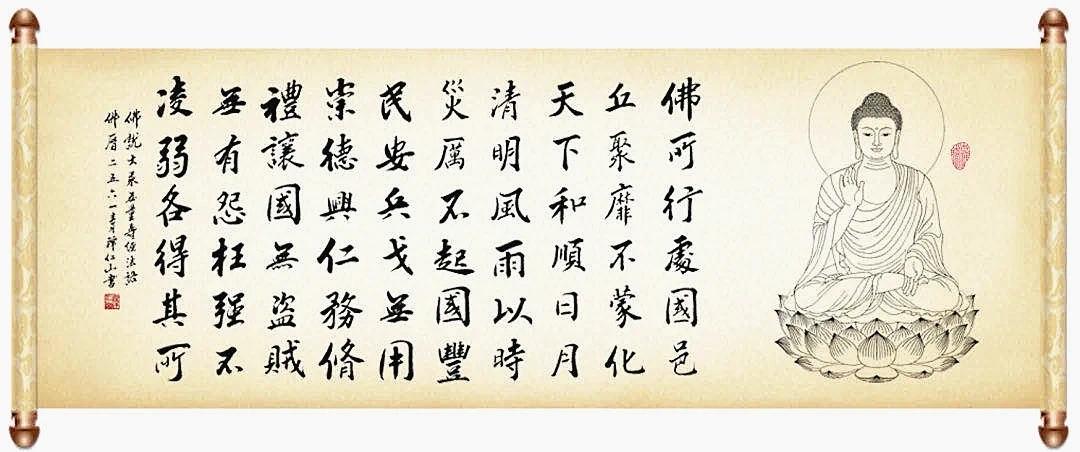 佛所行處國邑
丘聚靡不蒙化
天下和順日月
清明風雨以時
災厲不起國豐
民安兵戈無用
崇德興仁務脩
禮讓國無盜賊
無有怨枉强不
凌弱各得其所
佛說大乘無量壽經法語
佛曆二五六一 月禪仁山書